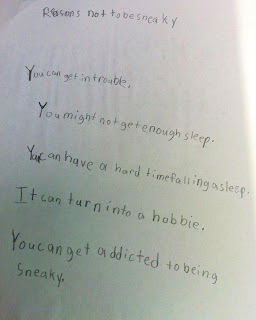 Reasons not to be sneaky
You can get in trouble.
You might not get enough sleep.
You can have a hard time falling asleep.
It can turn into a hobbie.
You can get addicted to being
sneaky.